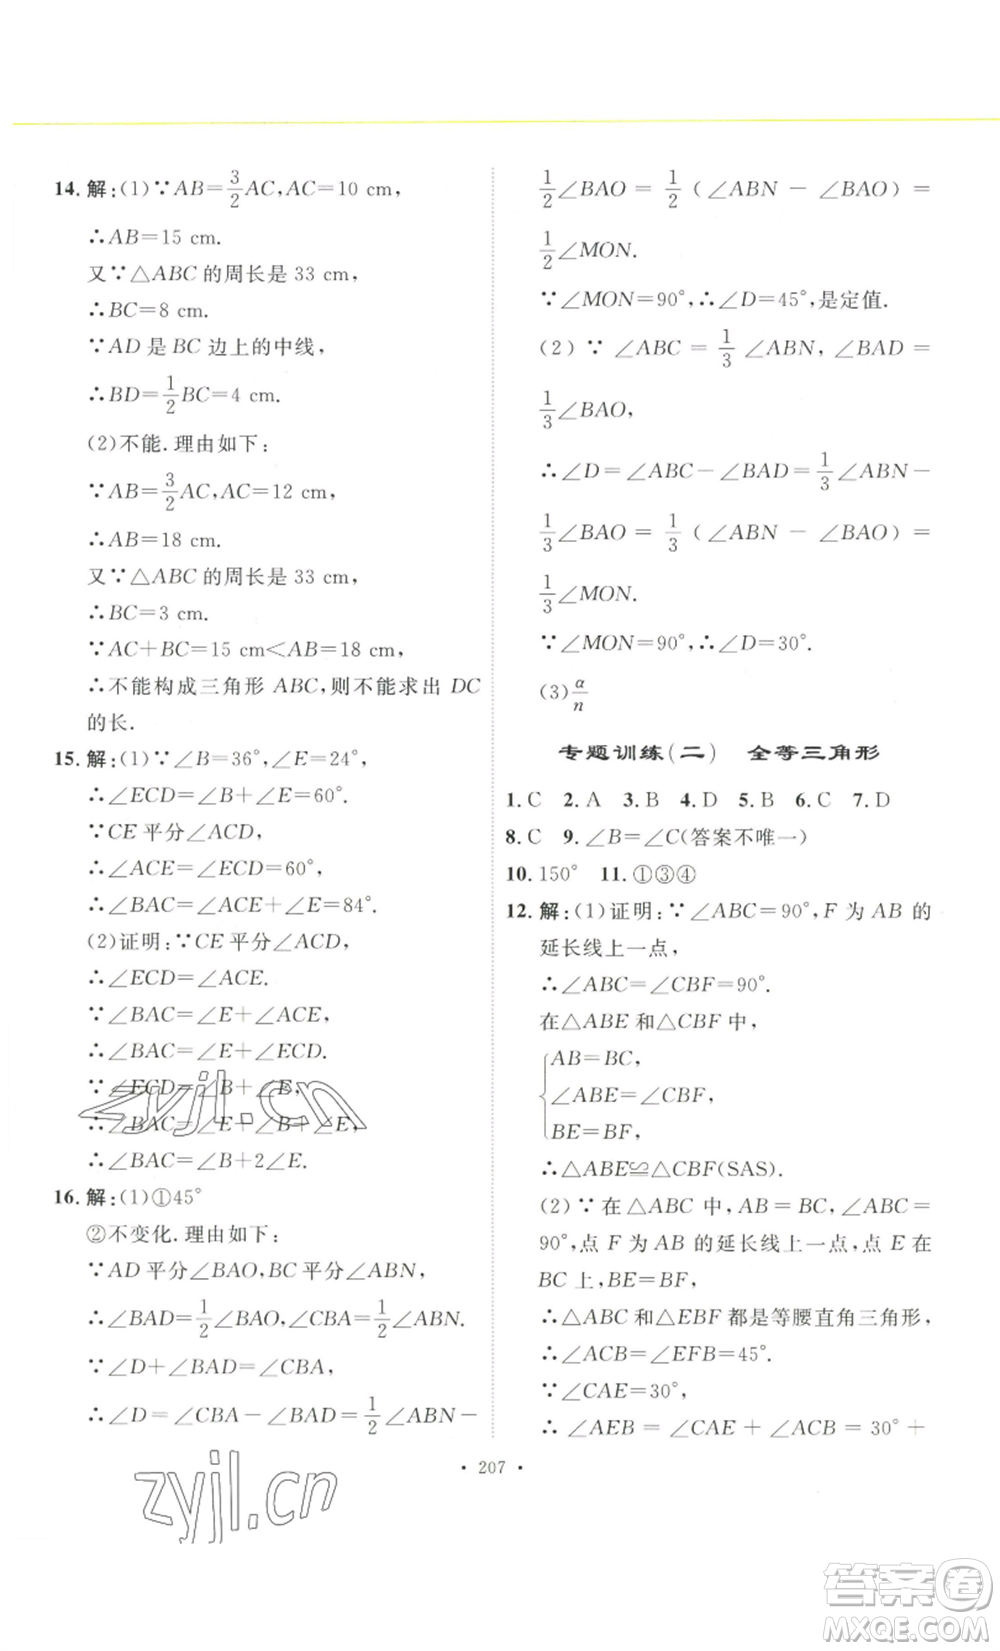 14. 解:(1)∵AB=3/2AC,AC=10 cm,
∴AB=15 cm.
又∵△ABC 的周长是 33 cm,
∴BC=8 cm.
∵AD 是 BC 边上的中线,
∴BD=1/2BC=4 cm.
(2)不能.理由如下:
∵AB=3/2AC,AC=12 cm,
∴AB=18 cm.
又∵△ABC 的周长是 33 cm,
∴BC=3 cm.
∵AC+BC=15 cm<AB=18 cm,
∴不能构成三角形 ABC,则不能求出 DC
的长.
15. 解:(1)∵∠B=36°,∠E=24°,
∴∠ECD=∠B+∠E=60°.
∵CE 平分∠ACD,
∴∠ACE=∠ECD=60°,
∴∠BAC=∠ACE+∠E=84°.
(2)证明:∵CE 平分∠ACD,
∴∠ECD=∠ACE.
∵∠BAC=∠E+∠ACE,
∴∠BAC=∠E+∠ECD.
∵∠ECD=∠B+∠E,
∴∠BAC=∠E+∠B+∠E,
∴∠BAC=∠B+2∠E.
16. 解:(1)①45°
②不变化.理由如下:
∵AD 平分∠BAO,BC 平分∠ABN,
∴∠BAD=1/2∠BAO,∠CBA=1/2∠ABN.
∵∠D+∠BAD=∠CBA,
∴∠D=∠CBA-∠BAD=1/2∠ABN-
1/2∠BAO = 1/2(∠ABN - ∠BAO) =
1/2∠MON.
∵∠MON=90°,∴∠D=45°,是定值.
(2)∵∠ABC=1/3∠ABN,∠BAD=
1/3∠BAO,
∴∠D=∠ABC-∠BAD=1/3∠ABN-
1/3∠BAO = 1/3(∠ABN - ∠BAO) =
1/3∠MON.
∵∠MON=90°,∴∠D=30°.
(3)α/n
专题训练(二) 全等三角形
1. C 2. A 3. B 4. D 5. B 6. C 7. D
8. C 9. ∠B=∠C(答案不唯一)
10. 150° 11. ①③④
12. 解:(1)证明:∵∠ABC=90°,F 为 AB 的
延长线上一点,
∴∠ABC=∠CBF=90°.
在△ABE 和△CBF 中,
AB=BC,
∠ABE=∠CBF,
BE=BF,
∴△ABE≌△CBF(SAS).
(2)∵在△ABC 中,AB=BC,∠ABC=
90°,点 F 为 AB 的延长线上一点,点 E 在
BC 上,BE=BF,
∴△ABC 和△EBF 都是等腰直角三角形,
∴∠ACB=∠EFB=45°.
∵∠CAE=30°,
∴∠AEB=∠CAE+∠ACB=30°+
• 207 •
zyjl.cn
zyjl.cn
答案圈
MXQE.COM